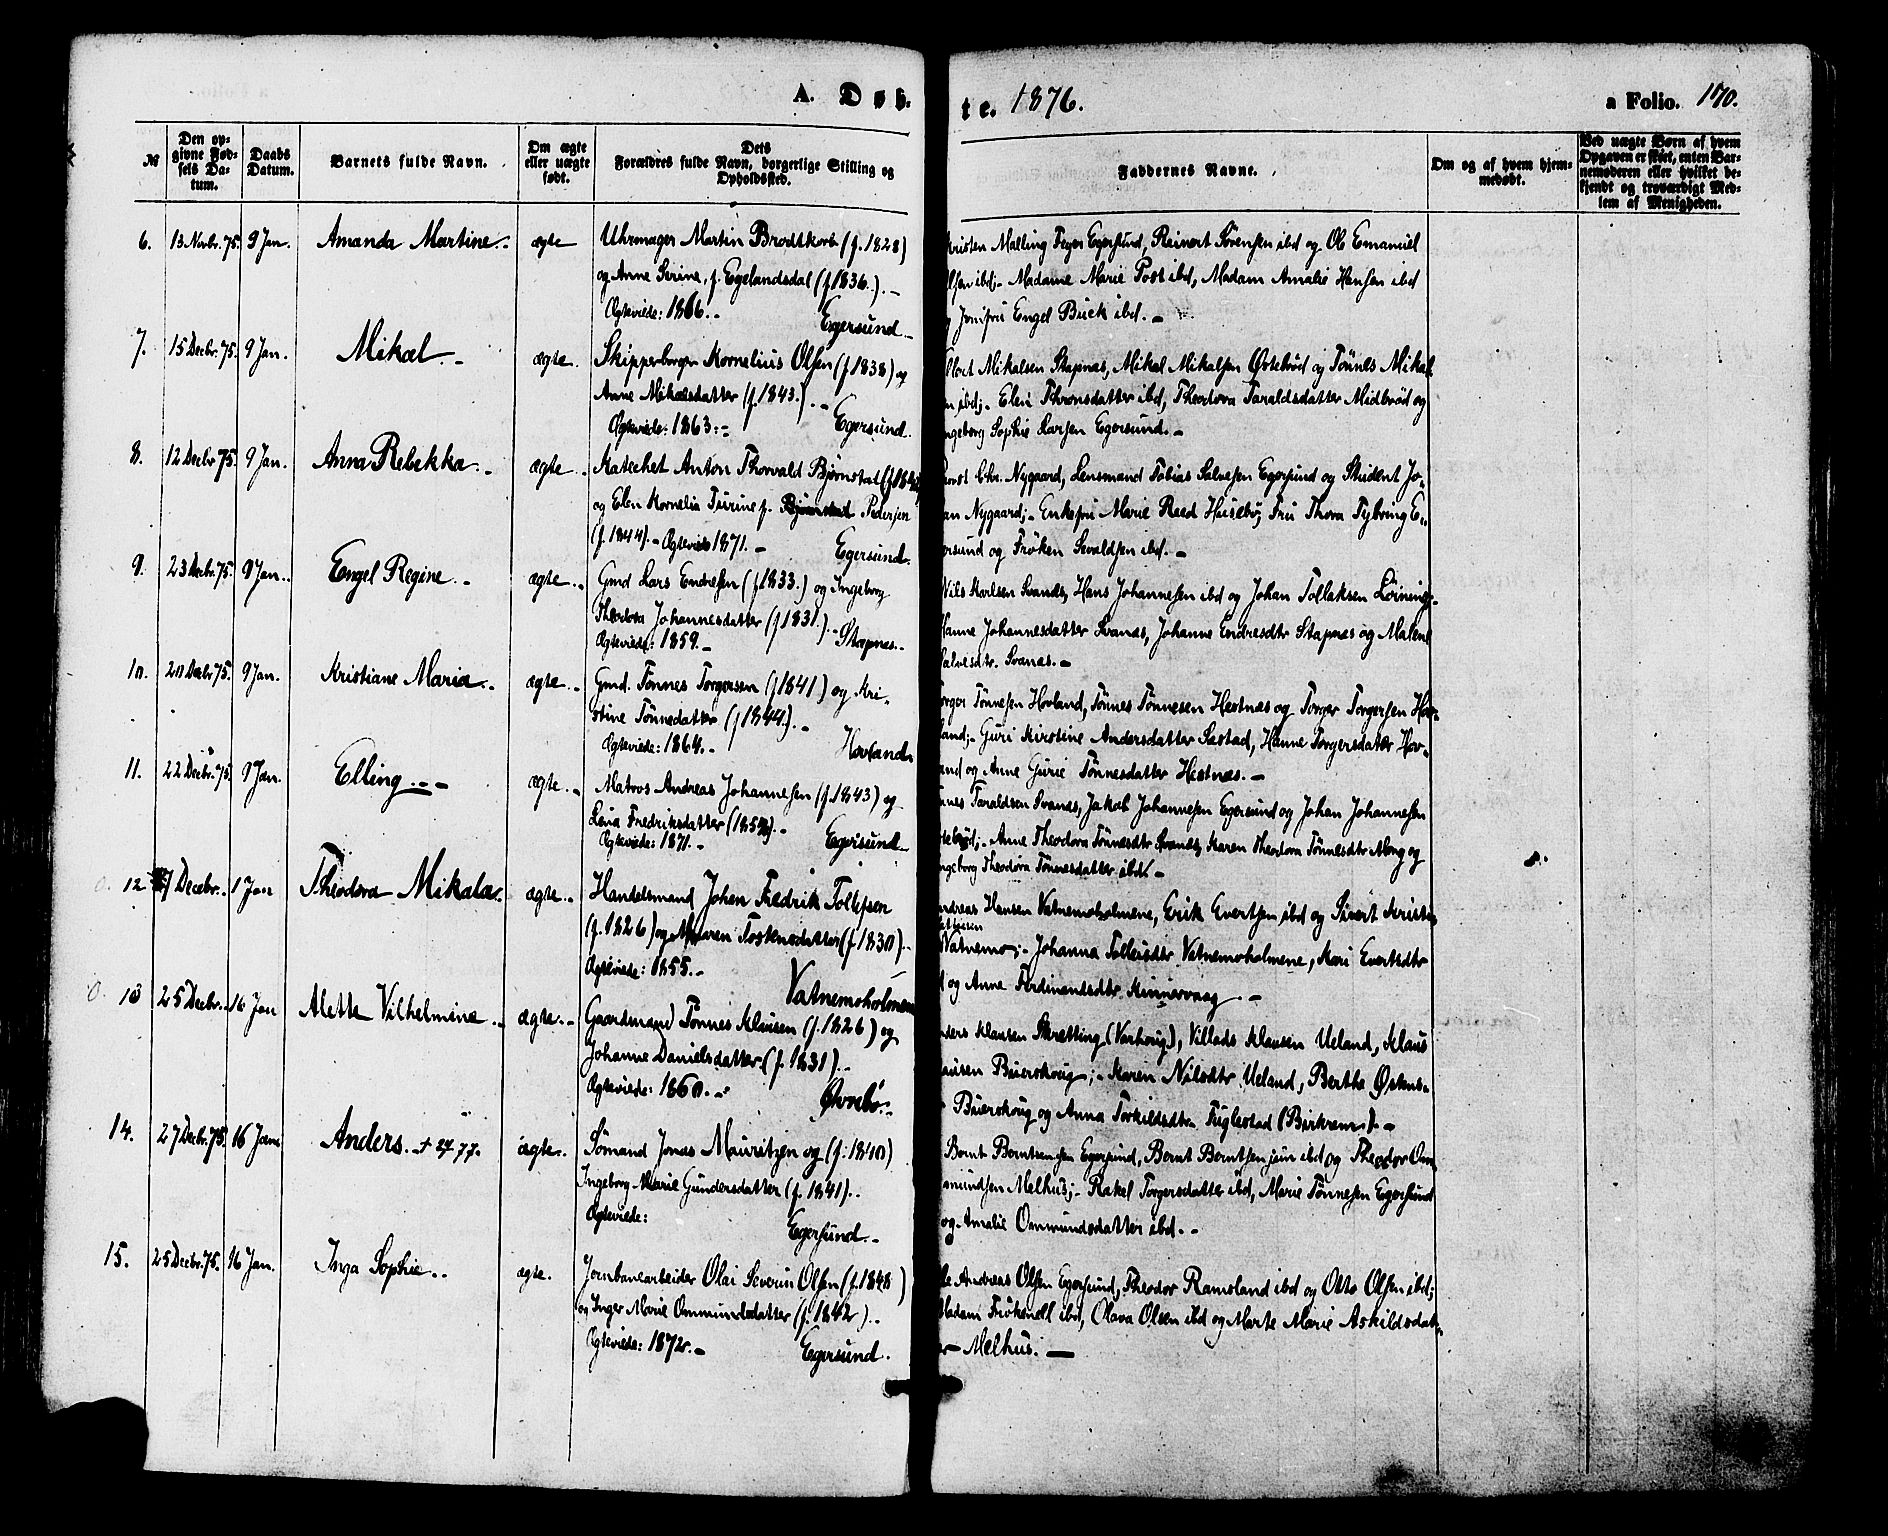 A. Døb- te. 1876.
a Folio. 170.
№
Den opgivne Fødsels Datum.
Daabs Datum.
Barnets fulde Navn.
Om ægte eller uægte født.
Dets Forældres fulde Navn, borgerlige Stilling og Opholdssted.
Faddernes Navne.
Om og af hvem hjemmedøbt.
Ved uægte Børn af hvem Opgaven er skeet, enten Barnemoderen eller hvilket bekjendt og troværdigt Medlem af Menigheden.
6. 13 Novbr. 75. 9 Jan. Amanda Martine. ægte
Uhrmager Martin Brodtkorb (f. 1828)
og Anne Serine, f. Egelandsdal (f 1836.). -
Ægteviede: 1866. - Egersund
Kristen Malling Feyer Egersund, Reinert Sørensen ibd og Ole Emanuel
Olsen ibd; - Madame Marie Post ibd, Madam Amalie Hansen ibd
og Jomfru Engel Buck ibd. -
7. 15 Decbr. 75. 9 Jan. Mikal. - ægte.
Skipperborger Kornelius Olsen (f 1838) og
Anne Mikalsdatter (f. 1843.). -
Ægteviede: 1863. - Egersund.
Mikalsen Stapnæs, Mikal Mikalsen Østebrød og Tønnes Mikal
ibd; - Elen Thronsdatter ibd, Theodora Taraldsdatter Midbrød og
Ingeborg Sophie Larsen Egersund. -
8. 12 Decbr 75. 9 Jan. Anna Rebekka. ægte
Katechet Anton Thorvald Bjørnstad
og Elen Kornelia Turine f. Pedersen
(f. 1844). - Ægteviede 1871. - Egersund.
Provst Chr. Nygaard, Lensmand Tobias Salvesen Egersund og Student Jo-
an Nygaard; - Enkefru Marie Reed Husebø, Fru Thora Tybring E-
gersund og Frøken Sevaldsen ibd. -
9. 23 Decbr. 75. 9 Jan. Engel Regine. ægte.
Gmd Lars Endresen (f 1833.) og Ingeborg
Theodora Johannesdatter (f 1831.). - Stapnæs.
Ægteviede: 1859. -
Nils Karlsen Svanes, Hans Johannesen ibd og Johan Tollaksen
Hanne Johannesdatter Svanæs, Johanne Endresdtr Stapnæs og Malene
Salvesdtr. Svanæs. -
10. 20 Decbr 75. 9 Jan. Kristiane Maria. ægte.
Gmd. Tønnes Torgersen (f 1841.) og Kri-
stine Tønnesdatter (f 1844). -
Ægteviede: 1864. - Hovland
Torger Tønnesen Hovland, Tønnes Tønnesen Hestnæs og Torger Torgersen Hov-
land; - Guri Kirstine Andersdatter Sæstad, Hanne Torgersdatter Hov-
land og Anne Gurie Tønnesdatter Hestnæs. -
11. 22 Decbr. 75. 9 Jan. Elling. ægte.
Matros Andreas Johannesen (f. 1843) og
Lena Fredriksdatter
Ægteviede: 1871. - Egersund
Taraldsen Svanæs, Jakob Johannesen Egersund og Johan Johannesen
Anne Theodora Tønnesdtr Svanæs, Karen Theodora Tønnesdtr og
Ingeborg Theodora Tønnesdatter ibd. -
12 7 Decbr. 1 Jan Theodora Mikala. ægte.
Handelsmand Johan Fredrik Tollefsen
(f. 1826) og Maren (f. 1830).
Ægteviede: 1855. - Vatnemoholmene
Andreas Hansen Vatnemoholmene, Erik Evertsen ibd og Sivert
Vatnemo; - Johanna Tolleisdtr Vatnemoholmene, Kari Evertsdtr
og Anne Ferdinandsdtr. Kinnervaag. -
13 25 Decbr. 16 Jan Alette Vilhelmine. ægte.
Gaardmand Tønnes Klausen (f. 1826) og
Johanne Danielsdatter (f. 1831). -
Ægteviede: 1860. - Øvrebø.
Anders Klausen Skretting (Varhoug), Villads Klausen Ueland, Klaus
Klausen Buerskoug; - Karen Nilsdtr Ueland, Berthe
Buerskoug og Anna Torkildsdtr Fuglestad (Birkrem). -
14. 27 Decbr. 75. 16 Jan Anders. ægte.
Sømand Jonas Mauritzen og (f. 1840)
Ingeborg Marie Gundersdatter (f. 1841).
Ægteviede: Egersund. -
Bernt Berntsen sen Egersund, Bernt Berntsen jun ibd og Theodor Om-
mundsen Melhus; - Rakel Torgersdatter ibd, Marie Tønnesen Egersund
og Amalie Ommundsdatter ibd. -
15. 25 Decbr. 75. 16 Jan. Inga Sophie. ægte.
Jernbanearbeider Olai Severin Olsen (f. 1848)
og Inger Marie Ommundsdatter (f. 1842).
Ægteviede: 1872. - Egersund.
Andreas Olsen Egersund, Theodor Ramsland ibd og Otto Olsen ibd;
Madam ibd, Olava Olsen ibd og Marte Marie Askildsdat-
ter Melhus. -